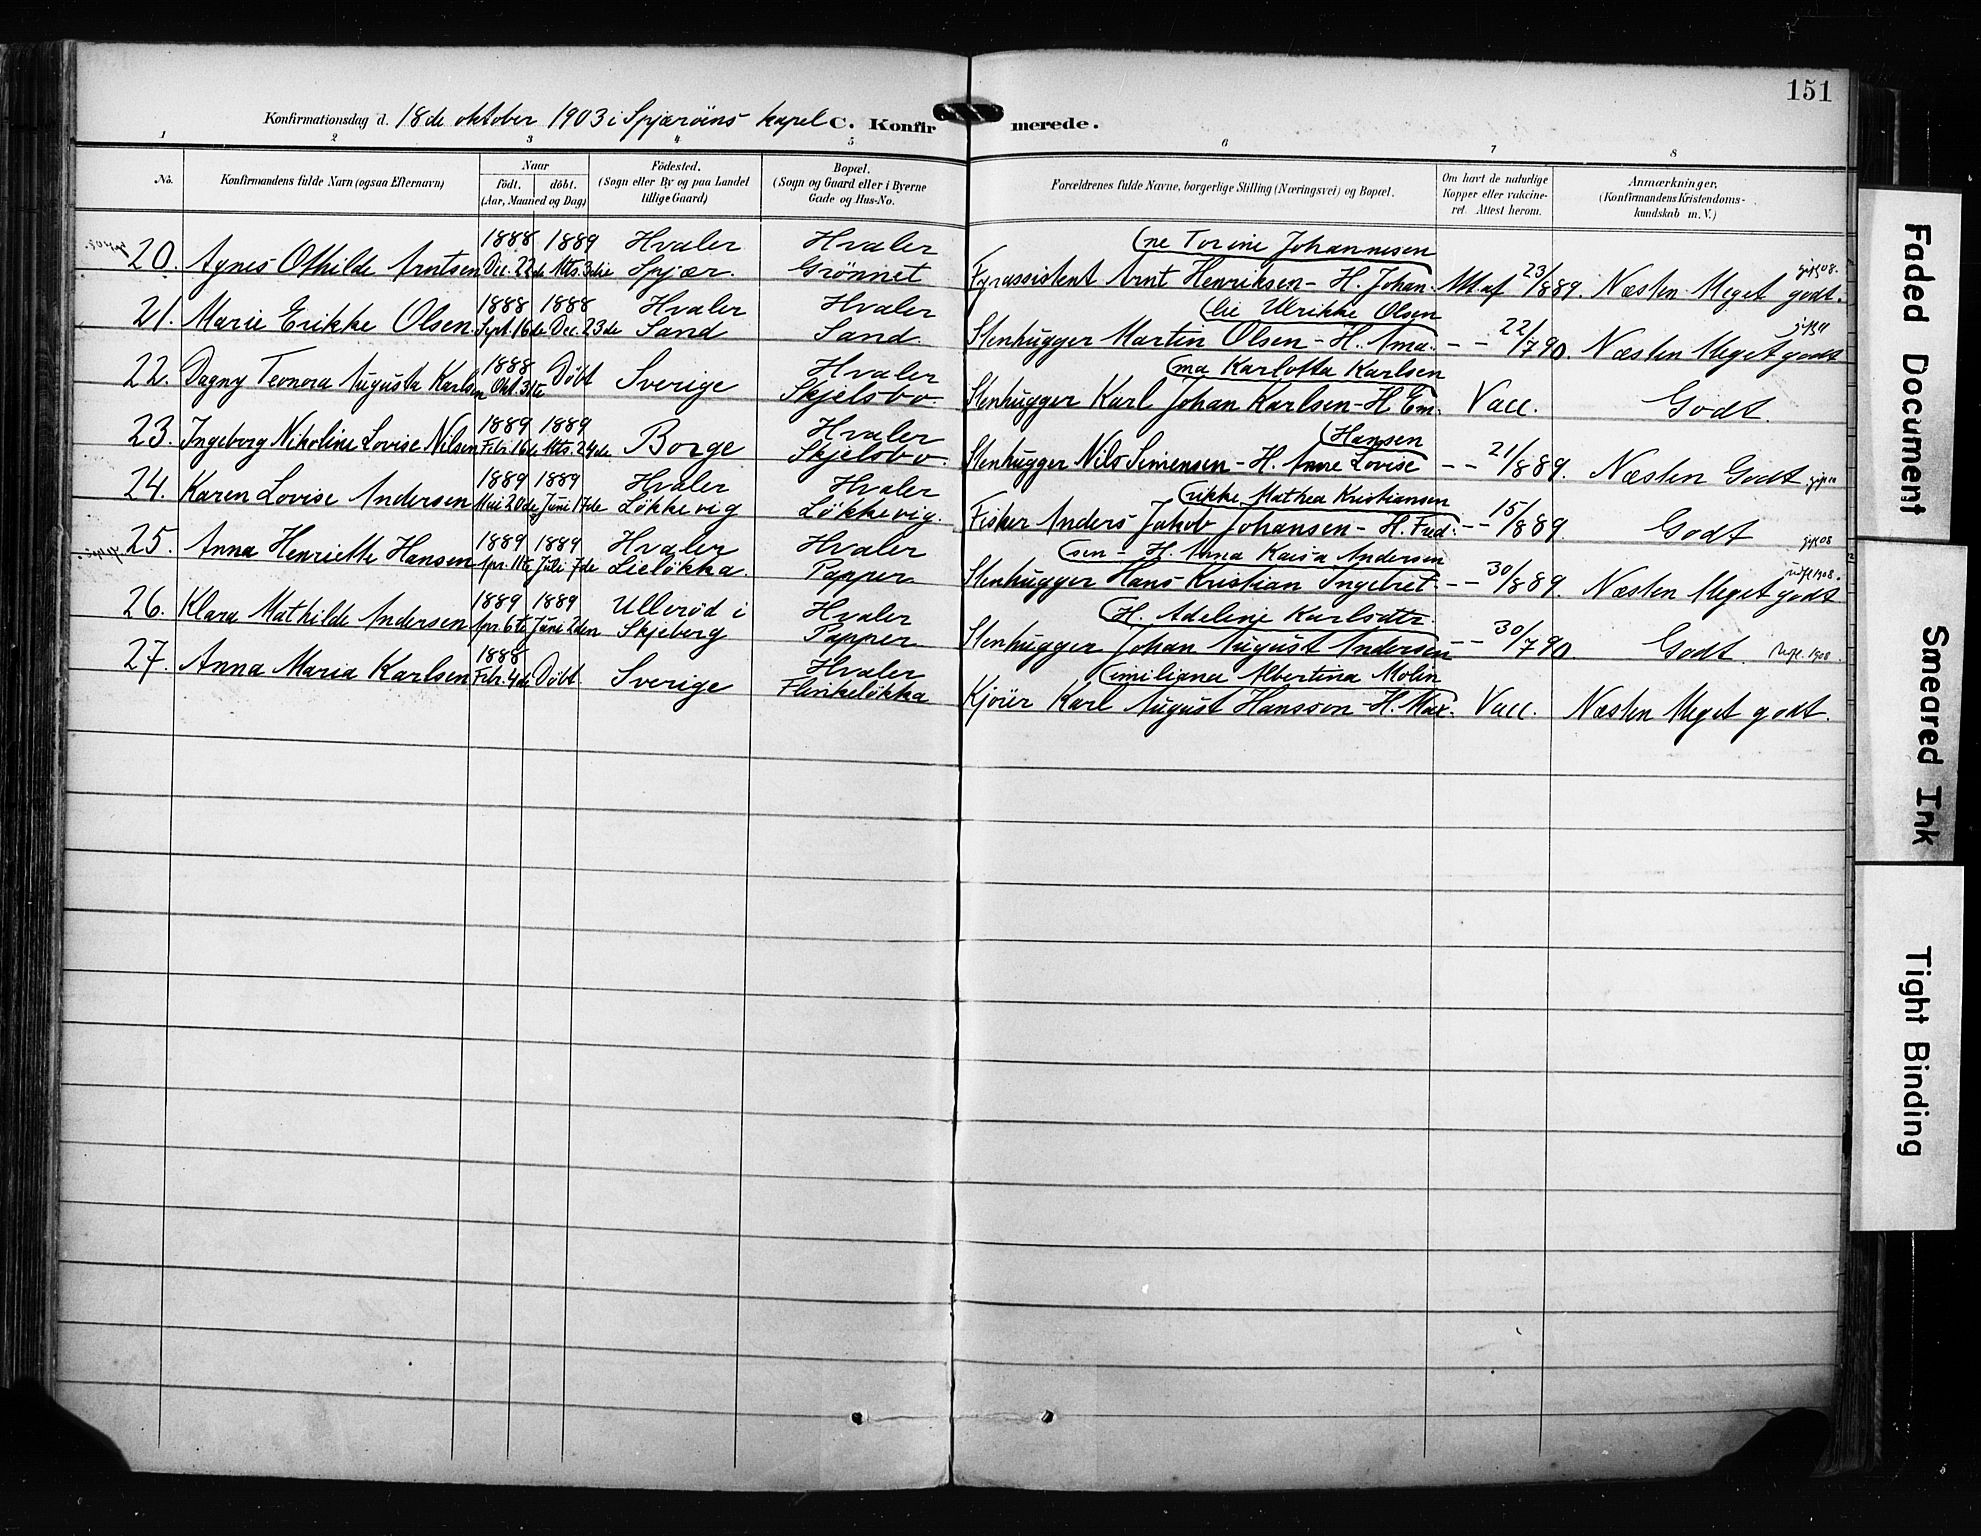 151
Konfirmationsdag d. 18de oktober 1903 i Spjærøens kapel C. Konfirmerede.
1 2 3 4 5 6 7 8
No. Konfirmandens fulde Navn (ogsaa Efternavn) Naar født. døbt. (Aar, Maaned og Dag) Fødested. (Sogn eller By og paa Landet tillige Gaard) Bopæl. (Sogn og Gaard eller i Byerne Gade og Hus-No. Forældrenes fulde Navne, borgerlige Stilling (Næringsvei) og Bopæl. Om havt de naturlige Kopper eller vakcineret. Attest herom. Anmærkninger. (Konfirmandens Kristendomskundskab m. V.)
1888 1889 Hvaler Hvaler (ne Torine Johannesen
20. Agnes Othilde Arntsen Dec. 22de Mts. 3die Spjær. Grønnet Fyrassistent Arnt Henriksen - H. Johan. Att. af 23/8 89. Næsten Meget godt.
1888 1888 Hvaler Hvaler (lie Ulrikke Olsen
21. Marie Erikke Olsen Sept. 16de Dec. 23de Sand Sand Stenhugger Martin Olsen - H. Ama. - - 22/7 90. Næsten Meget godt
1888 Hvaler (ma Karlotta Karlsen
22. Dagny Teonora Augusta Karlsen Okt. 31te Døbt Sverige Skjelsbo. Stenhugger Karl Johan Karlsen - H Em. Vacc. Godt.
1889 1889 Hvaler (Hansen
23. Ingeborg Nikoline Lovise Nilsen Febr. 16de Mts. 24de Borge Skjelsbo. Stenhugger Nils Simensen - H. Anne Lovise - - 21/8 89. Næsten Godt
1889 1889 Hvaler Hvaler (rikke Mathea Kristiansen
24. Karen Lovise Andersen Mai 20de Juni 17de Løkkevig Løkkevig. Fisker Anders Jakob Johansen - H. Fred. - - 15/8 89. Godt
1889 1889 Hvaler Hvaler (sen - H. Anna Kaisa Andersen
25. Anna Henriette Hansen Apr. 11te Juli 7de Lieløkka. Papper Stenhugger Hans Kristian Ingebret. - - 30/8 89. Næsten Meget godt
1889 1889 Ullerød i Hvaler (H. Adeline Karlsdtr.
26. Klara Mathilde Andersen Apr. 6te Juni 2den Skjeberg Papper Stenhugger Johan August Andersen - - 30/7 90. Godt.
1888 Hvaler (imiliana Albertina Molin
27. Anna Maria Karlsen Febr. 4de Døbt. Sverige Flinkeløkka Kjører Karl August Hansson - H. Max. Vacc. Næsten Meget godt.
Faded Document
Smeared Ink
Tight Binding